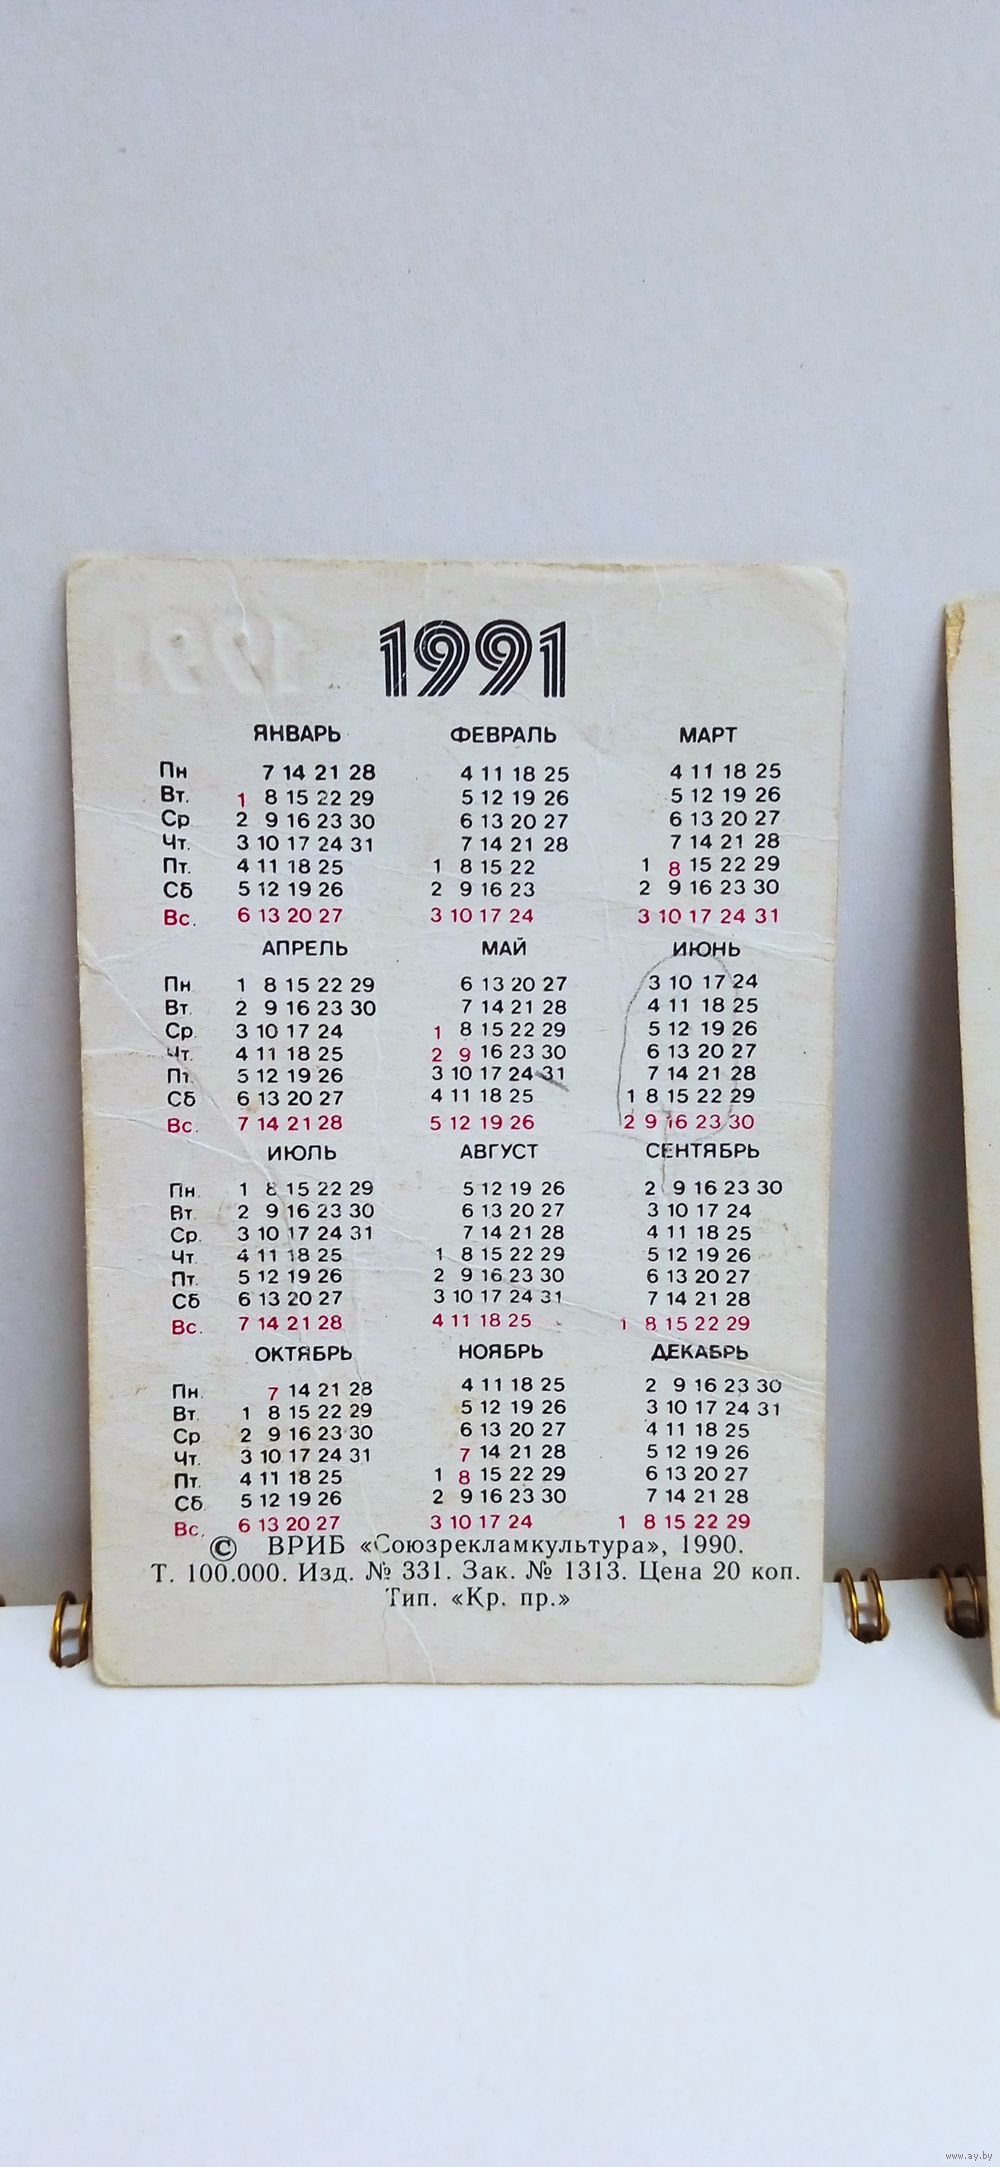 1991
ЯНВАРЬ ФЕВРАЛЬ МАРТ
Пн 7 14 21 28 4 11 18 25 4 11 18 25
Вт. 1 8 15 22 29 5 12 19 26 5 12 19 26
Ср 2 9 16 23 30 6 13 20 27 6 13 20 27
Чт. 3 10 17 24 31 7 14 21 28 7 14 21 28
Пт. 4 11 18 25 1 8 15 22 1 8 15 22 29
Сб 5 12 19 26 2 9 16 23 2 9 16 23 30
Вс. 6 13 20 27 3 10 17 24 3 10 17 24 31
АПРЕЛЬ МАЙ ИЮНЬ
Пн 1 8 15 22 29 6 13 20 27 3 10 17 24
Вт. 2 9 16 23 30 7 14 21 28 4 11 18 25
Ср. 3 10 17 24 1 8 15 22 29 5 12 19 26
Чт. 4 11 18 25 2 9 16 23 30 6 13 20 27
Пт. 5 12 19 26 3 10 17 24 31 7 14 21 28
Сб 6 13 20 27 4 11 18 25 1 8 15 22 29
Вс. 7 14 21 28 5 12 19 26 2 9 16 23 30
ИЮЛЬ АВГУСТ СЕНТЯБРЬ
Пн. 1 8 15 22 29 5 12 19 26 2 9 16 23 30
Вт. 2 9 16 23 30 6 13 20 27 3 10 17 24
Ср. 3 10 17 24 31 7 14 21 28 4 11 18 25
Чт. 4 11 18 25 1 8 15 22 29 5 12 19 26
Пт. 5 12 19 26 2 9 16 23 30 6 13 20 27
Сб 6 13 20 27 3 10 17 24 31 7 14 21 28
Вс. 7 14 21 28 4 11 18 25 1 8 15 22 29
ОКТЯБРЬ НОЯБРЬ ДЕКАБРЬ
Пн. 7 14 21 28 4 11 18 25 2 9 16 23 30
Вт. 1 8 15 22 29 5 12 19 26 3 10 17 24 31
Ср. 2 9 16 23 30 6 13 20 27 4 11 18 25
Чт. 3 10 17 24 31 7 14 21 28 5 12 19 26
Пт. 4 11 18 25 1 8 15 22 29 6 13 20 27
Сб. 5 12 19 26 2 9 16 23 30 7 14 21 28
Вс. 6 13 20 27 3 10 17 24 1 8 15 22 29
© ВРИБ «Союзрекламкультура», 1990.
Т. 100.000. Изд. № 331. Зак. № 1313. Цена 20 коп.
Тип. «Кр. пр.»
www.ay.by